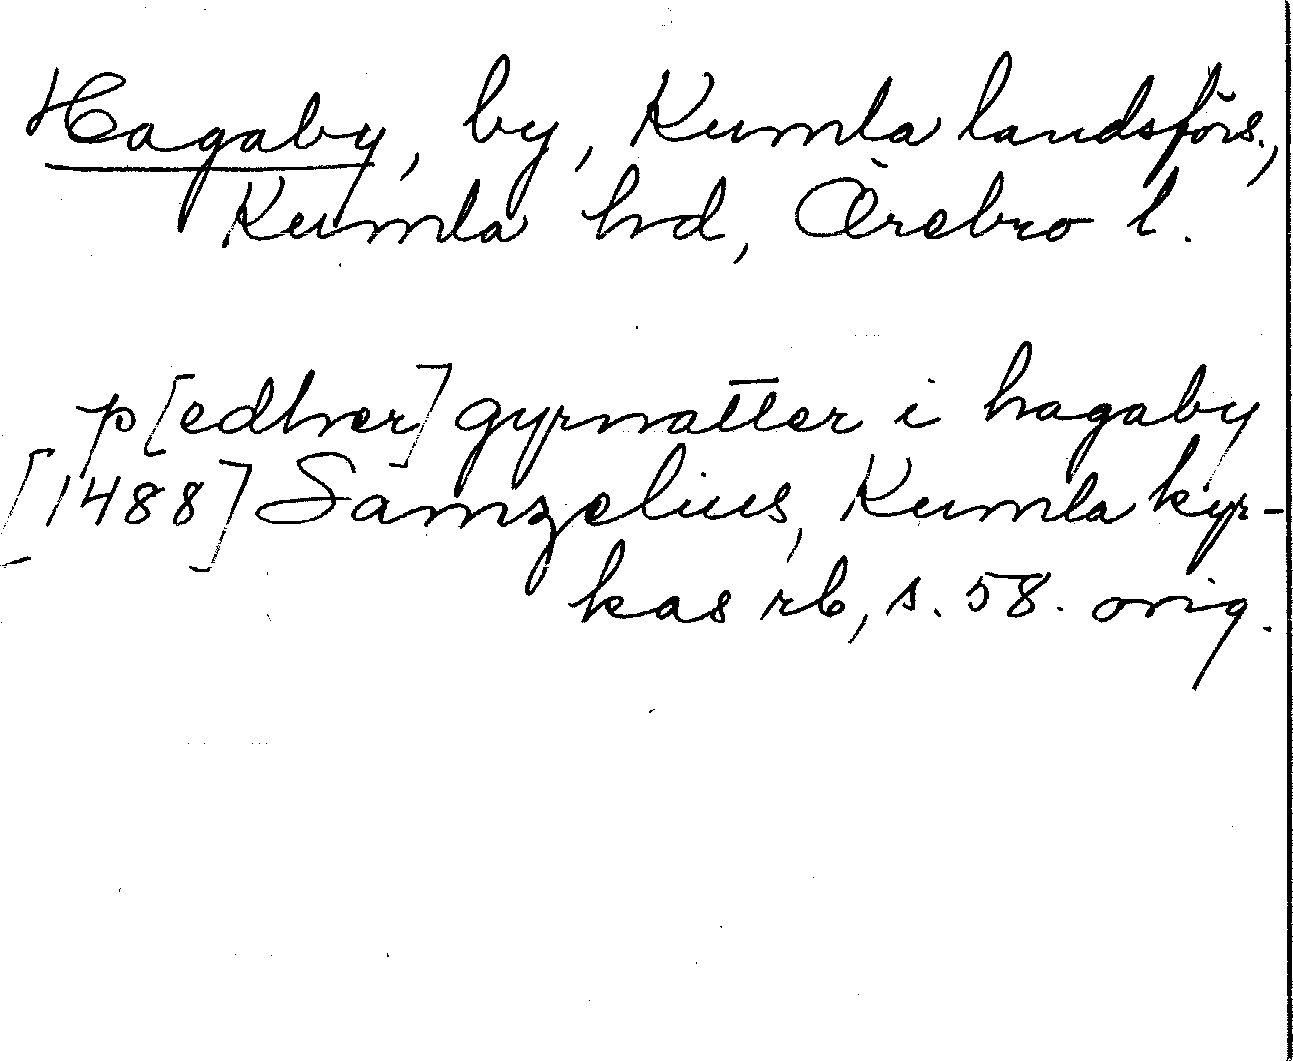 Hagaby, by, Kumla landsförs.,
Kumla hd, Örebro l.
p[edher] gyrmatter i hagaby
[1488] Samzelius, Kumla kyr-
kas rb, s. 58. orig.